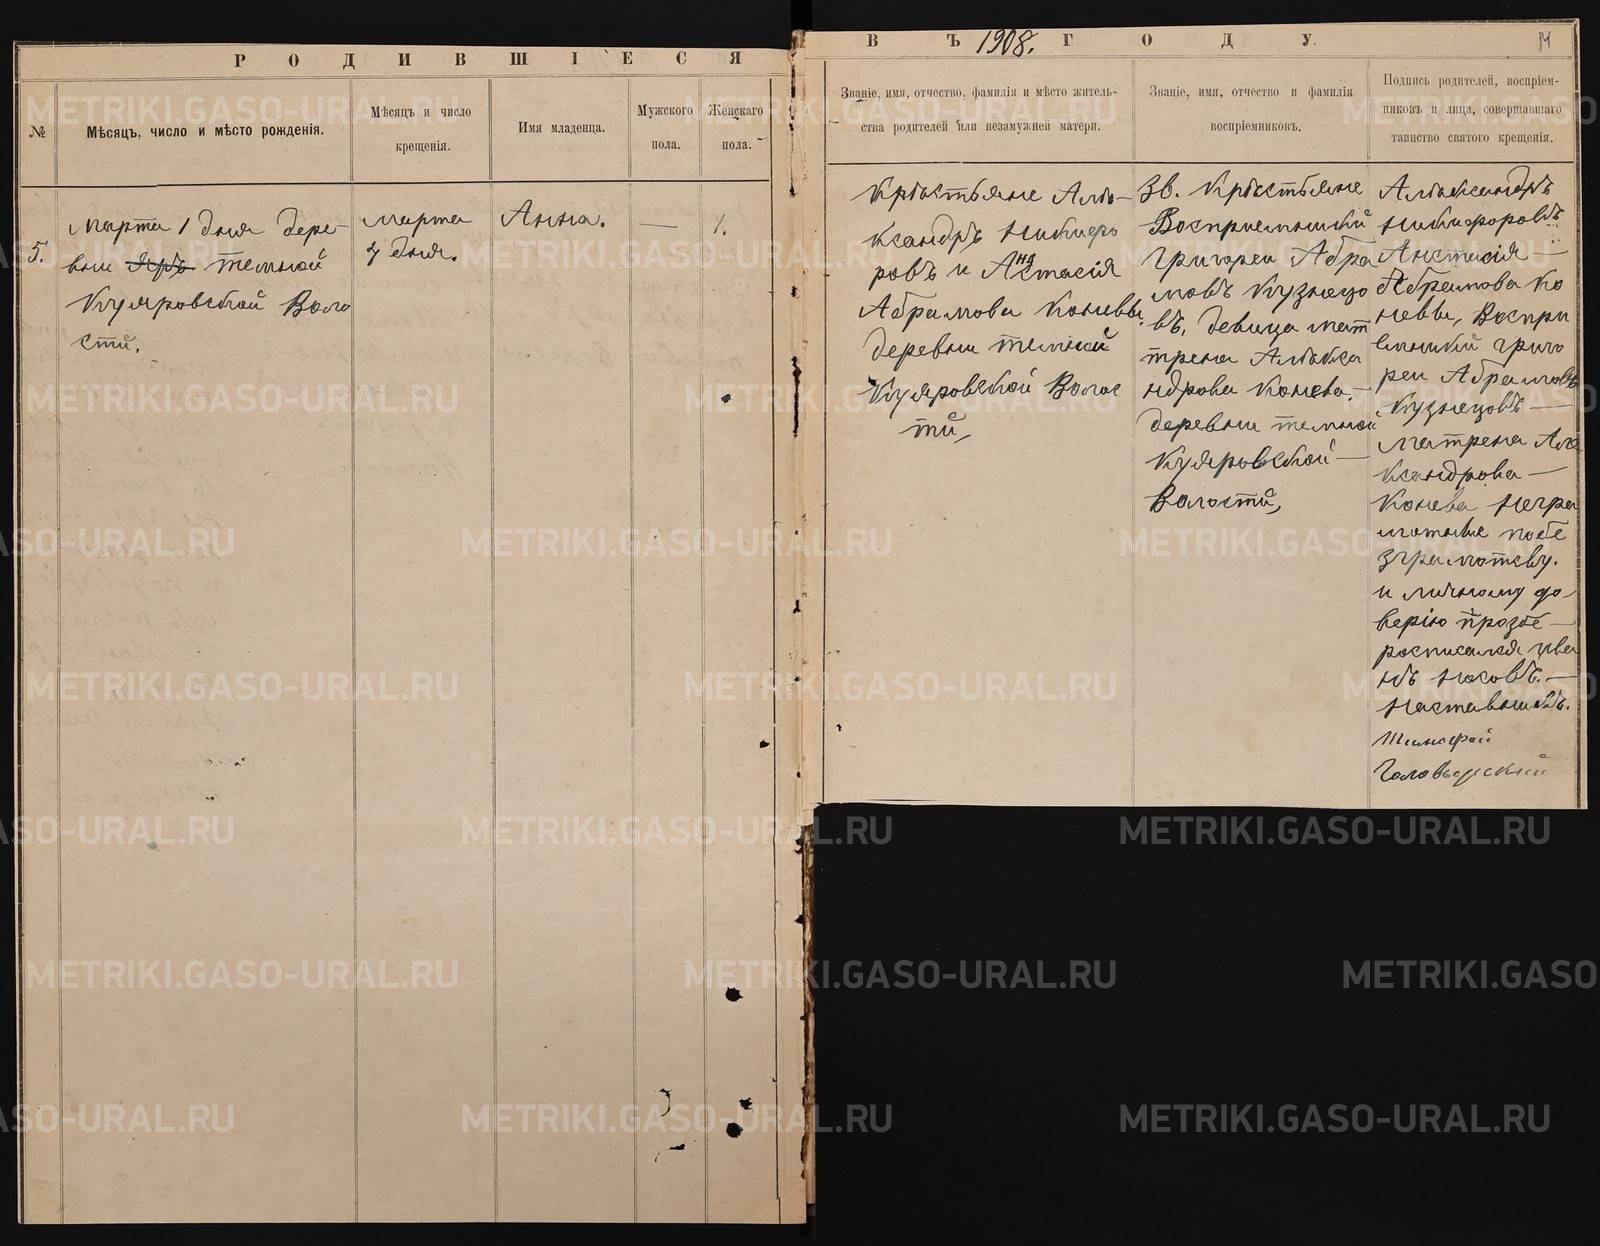 РОДИВШІЕСЯ
ВЪ 1908. ГОДУ.
14
№
Мѣсяцъ, число и мѣсто рожденія.
Мѣсяцъ и число
крещенія.
Имя младенца.
Мужского
пола.
Женскаго
пола.
Званіе, имя, отчество, фамилія и мѣсто житель-
ства родителей или незамужней матери.
Званіе, имя, отчество и фамилія
воспріемниковъ.
Подпись родителей, воспріем-
никовъ и лица, совершавшаго
таинство святого крещенія.
5.
марта 1 дня дере-
вни темной
Куяровской Воло
сти.
марта
7 дня.
Анна.
—
1.
Крѣстьяне Алѣ-
ксандръ Никифо
ровъ и Анастасія
Абрамова Коневы.
деревни темной
Куяровской Волос
ти,
Зв. Крѣстьяне
Восприемникй
григореи Абра
мовъ Кузнецо
въ. девица мат
трена Алѣкса
ндрова Конева. —
деревни темной
Куяровской —
Волости,
Алѣксандръ
Никифоровъ
Анстасія —
Абрамова Ко
невы, Воспри
емникй григо
реи Абрамовъ
Кузнецовъ —
матрена Але
ксандрова —
Конева неgра
мотные побе
зграмотству.
и личному до-
верію прозбе —
росписался ива
нъ Носовъ. —
Наставникъ.
Тимофей